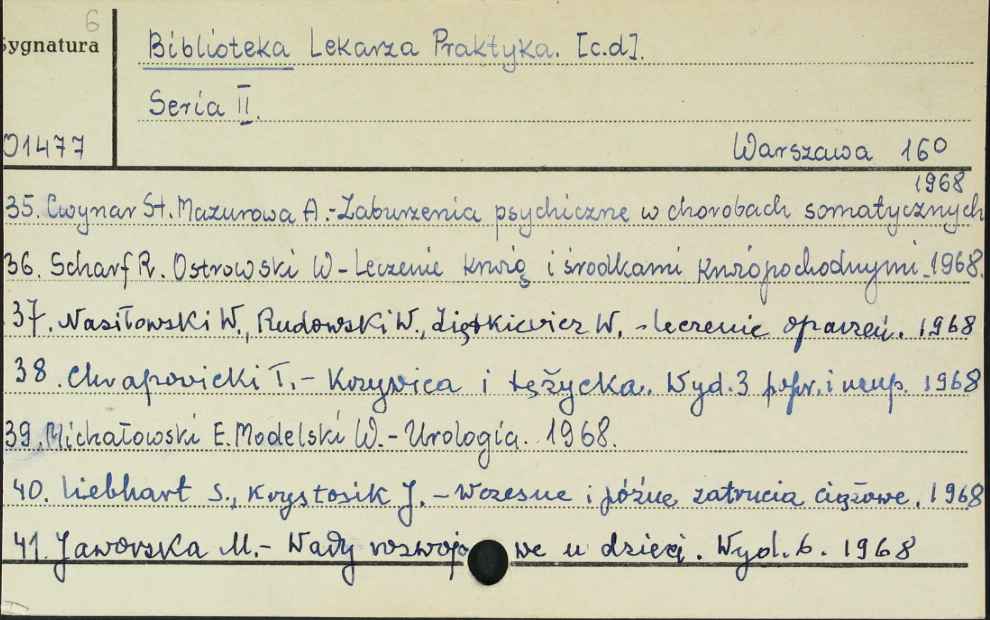 6
Sygnatura
Biblioteka Lekarza Praktyka. [c.d].
Seria II.
01477
Warszawa 16°
1968
35. Cwynar St. Mazurowa A.-Zaburzenia psychiczne w chorobach somatycznych
36. Scharf R. Ostrowski W-Leczenie krwią i środkami krwiopochodnymi.1968.
37. Nasiłowski W., Rudowski W., Ziętkiewicz W. - leczenie oparzeń. 1968
38. Chrapowicki T. - Krzywica i tężyczka. Wyd. 3 popr. i uzup. 1968
39. Michałowski E. Modelski W.- Urologia. 1968.
40. Liebhart S., Krystosik J. - Wczesne i późne zatrucia ciążowe. 1968
41. Jaworska M. - Wady rozwojowe u dzieci. Wyd. 6. 1968